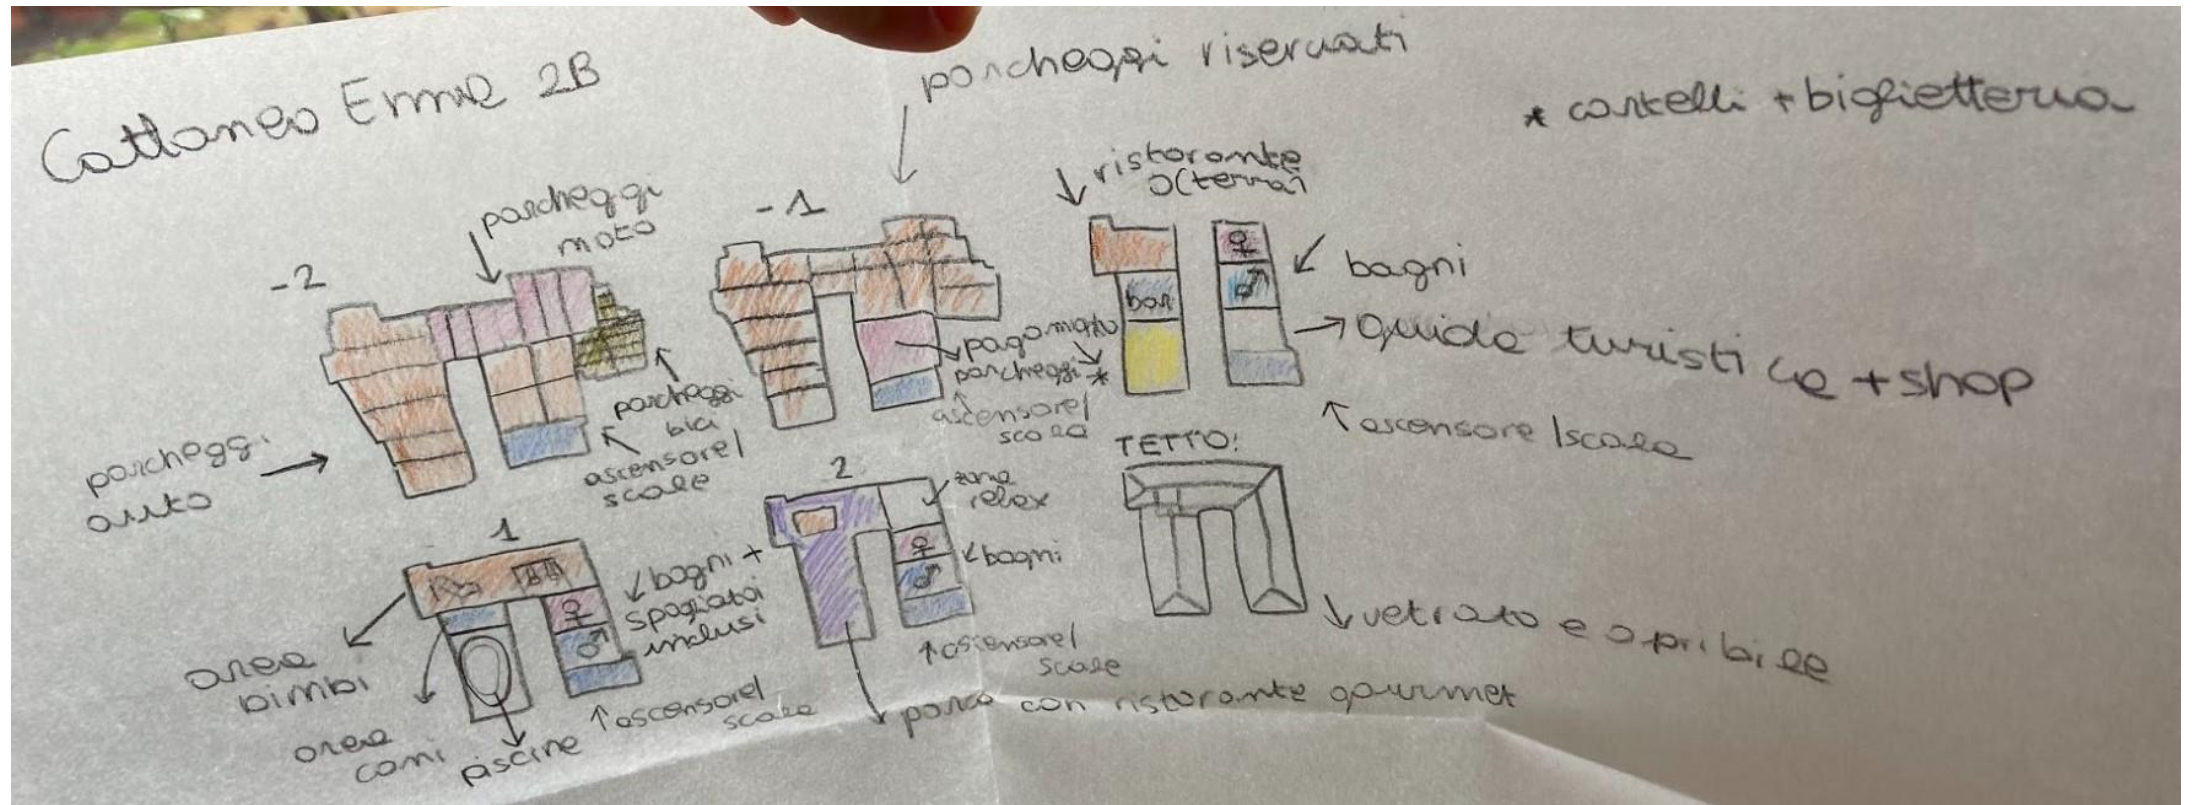 Cattaneo Emma 2B
parcheggi riservati
* cartelli + biglietteria
-2
parcheggi
moto
parcheggi
auto
parcheggi
bici
ascensore/
scale
-1
pagamento
parcheggi
*
ascensore/
scala
ristorante
0(terra)
bar
♀
♂
bagni
guide turistiche + shop
ascensore/scala
1
area
bimbi
area
cani
piscine
♀
♂
bagni +
spogliatoi
inclusi
ascensore/
scale
2
zona
relax
♀
♂
bagni
ascensore/
scale
parco con ristorante gourmet
TETTO:
vetrato e apribile